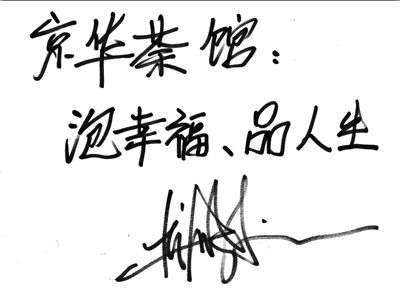 京华茶馆：
泡幸福、品人生